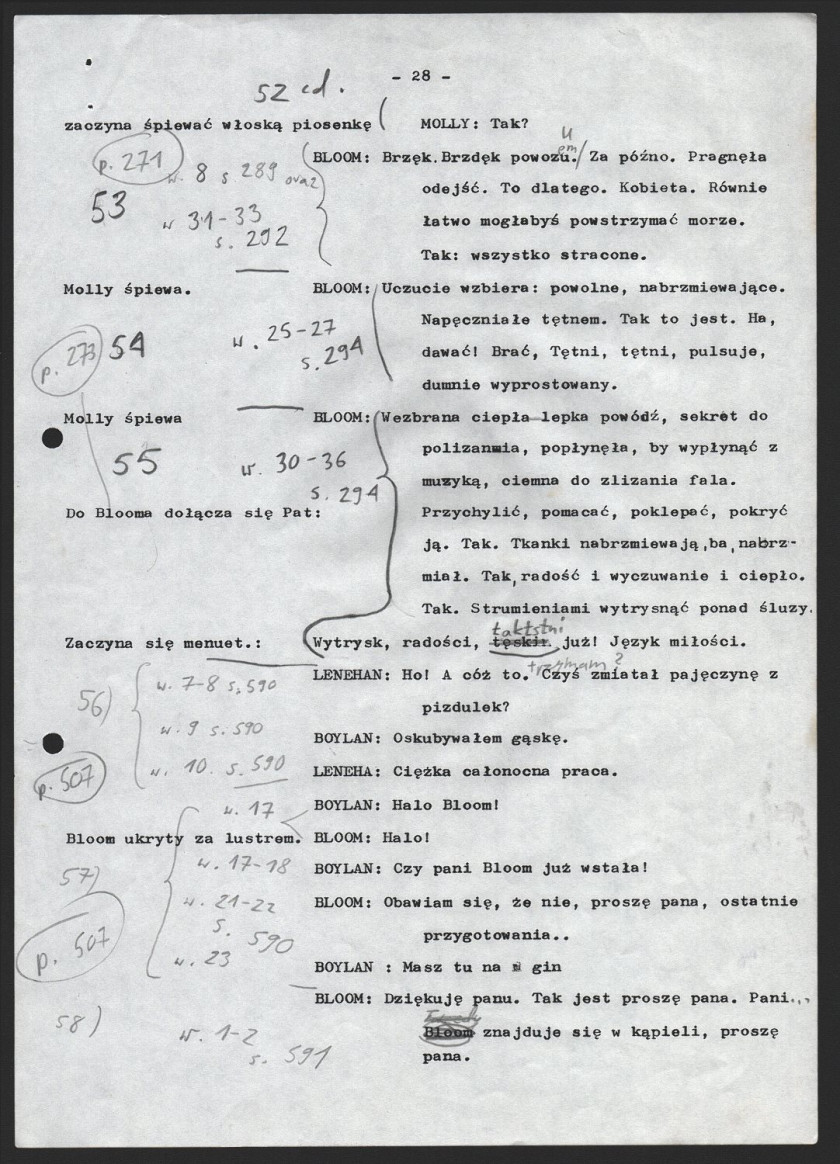 - 28 -
52 cd.
zaczyna śpiewać włoską piosenkę ( MOLLY: Tak?
p. 271
w. 8 s 289 oraz
BLOOM: Brzęk. Brzdęk powozu. Za późno. Pragnęła
odejść. To dlatego. Kobieta. Równie
53
w 31-33
s. 292
łatwo mogłabyś powstrzymać morze.
Tak: wszystko stracone.
Molly śpiewa. BLOOM: Uczucie wzbiera: powolne, nabrzmiewające.
Napęczniałe tętnem. Tak to jest. Ha,
p. 273 54 w. 25-27
s. 294
dawać! Brać, Tętni, tętni, pulsuje,
dumnie wyprostowany.
Molly śpiewa BLOOM: Wezbrana ciepła lepka powódź, sekret do
polizania, popłynęła, by wypłynąć z
55 w. 30-36
s. 294
muzyką, ciemna do zlizania fala.
Do Blooma dołącza się Pat: Przychylić, pomacać, poklepać, pokryć
ją. Tak. Tkanki nabrzmiewają,ba,nabrz-
miał. Tak,radość i wyczuwanie i ciepło.
Tak. Strumieniami wytrysnąć ponad śluzy.
Zaczyna się menuet.: Wytrysk, radości, już! Język miłości.
trzymam?
56) w. 7-8 s. 590
LENEHAN: Ho! A cóż to. Czyś zmiatał pajęczynę z
pizdulek?
w. 9 s. 590
BOYLAN: Oskubywałem gąskę.
p. 507 w. 10. s. 590
LENEHA: Ciężka całonocna praca.
w. 17
BOYLAN: Halo Bloom!
Bloom ukryty za lustrem. BLOOM: Halo!
57) w. 17-18
BOYLAN: Czy pani Bloom już wstała!
w. 21-22
s. 590
BLOOM: Obawiam się, że nie, proszę pana, ostatnie
przygotowania..
p. 507 w. 23
BOYLAN : Masz tu na gin
BLOOM: Dziękuję panu. Tak jest proszę pana. Pani...
58) w. 1-2
s. 591
Bloom znajduje się w kąpieli, proszę
pana.